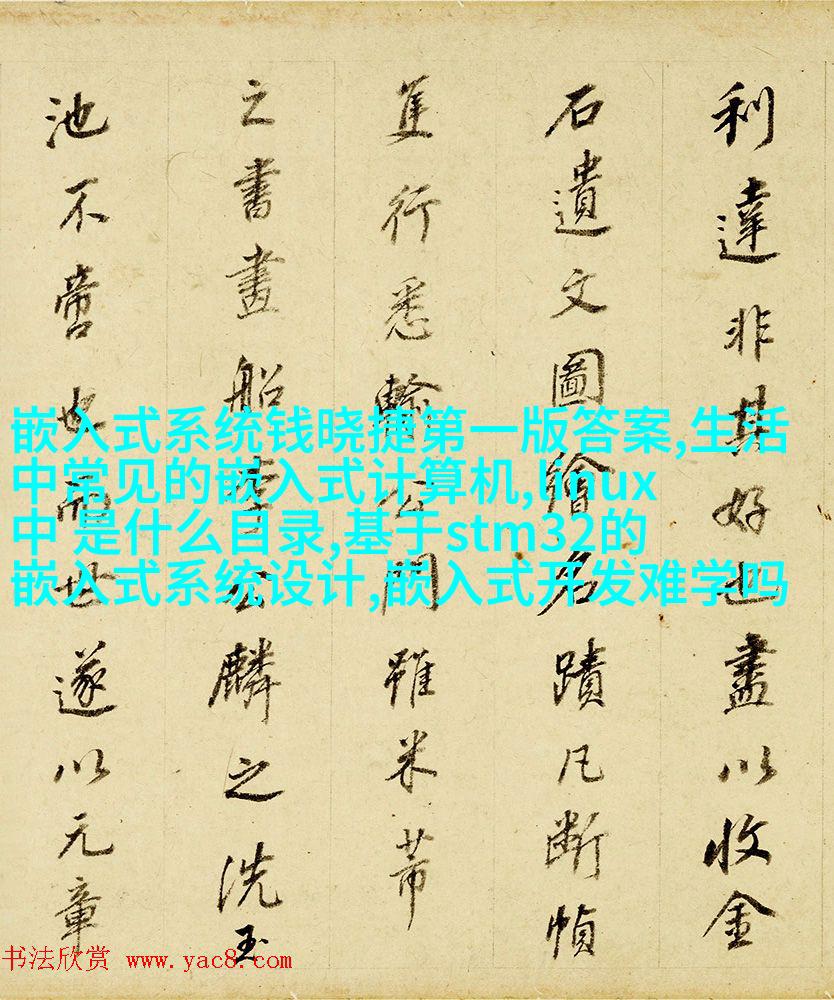 利達非其好也盡以收金
石遺文圖繪名蹟凡断幀
隻行悉輸公門雖米芾
之書畫船李公麟之洗玉
池不啻也而世遂以元章
嵌入式系统钱晓捷第一版答案,生活
中常见的嵌入式计算机,linux
中 是什么目录,基于stm32的
嵌入式系统设计,嵌入式开发难学吗
书法欣赏 www.yac8.com